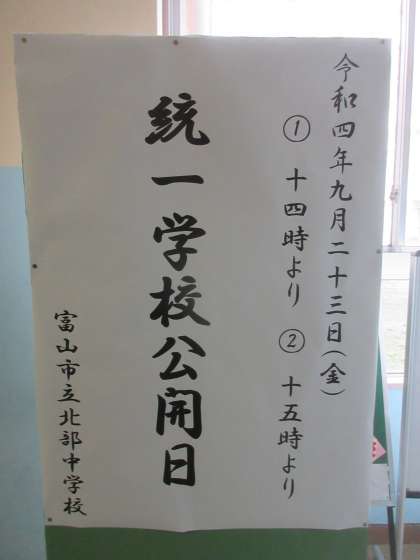 令和四年九月二十三日(金)
① 十四時より ② 十五時より
統一学校公開日
富山市立北部中学校